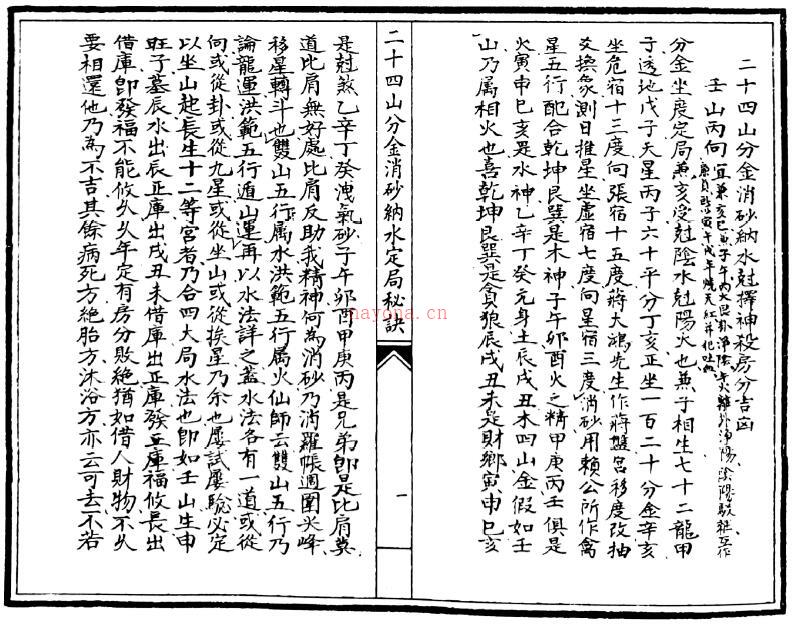 二十四山分金消砂納水尅擇神殺房分吉凶
壬山丙向
宜兼亥巳兼子午
分金坐度定局兼亥受尅陰水尅陽火也兼子相生七十二龍甲
子透地戊子天星丙子六十平分丁亥正坐一百二十分金辛亥
坐危宿十三度向張宿十五度蔣大鴻先生作蔣盤宮移度改抽
爻換象測日推星坐虛宿七度向星宿三度消砂用賴公所作禽
星五行配合乾坤艮巽是木神子午卯酉火之精甲庚丙壬俱是
火寅申巳亥是水神乙辛丁癸元身土辰戌丑未四山金假如壬
山乃屬相火也喜乾坤艮巽是貪狼辰戌丑未是財鄉寅申巳亥
二十四山分金消砂納水定局秘訣
一
是尅煞乙辛丁癸洩氣砂子午卯酉甲庚丙是兄弟即是比肩莫
道比肩無好處比肩反助我精神何為消砂乃消羅帳週圍尖峰
移星轉斗也雙山五行屬水洪範五行屬火仙師云雙山五行乃
論龍運洪範五行遁山運再以水法詳之蓋水法各有一道或從
向或從卦或從九星或從坐山或從挨星乃余也屢試屢驗必定
以坐山起長生十二等宮者乃合四大局水法也即如壬山生申
旺子墓辰水出辰正庫出戌丑未借庫出正庫發正庫福攸長出
借庫即發福不能攸久久年定有房分敗絕猶如借人財物不久
要相還他乃為不吉其餘病死方絕胎方沐浴方亦云可去不若
mayona.cn